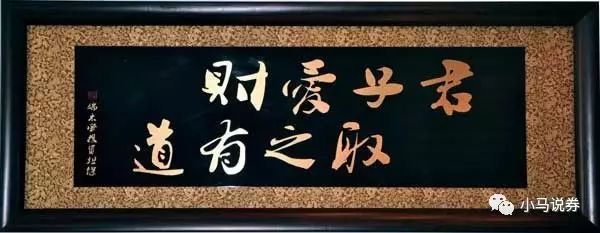 君子愛財
取之有道
小马说券